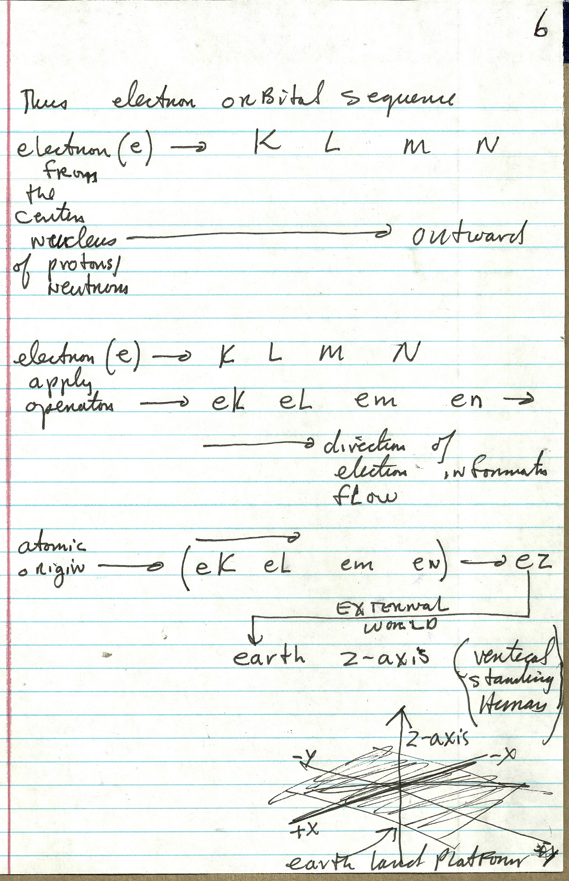 6
Thus electron orBital sequence
electron (e) → K L M N
from
the
center
nucleus → outward
of protons/
neutrons
electron (e) → K L M N
apply
operators → eK eL em en →
→ direction of
electron information
flow
atomic
origin → (eK eL em eN) → eZ
EXTERNAL
WORLD
earth z-axis (vertical
standing
Human)
z-axis
-y -x
+x +y
earth land Platform